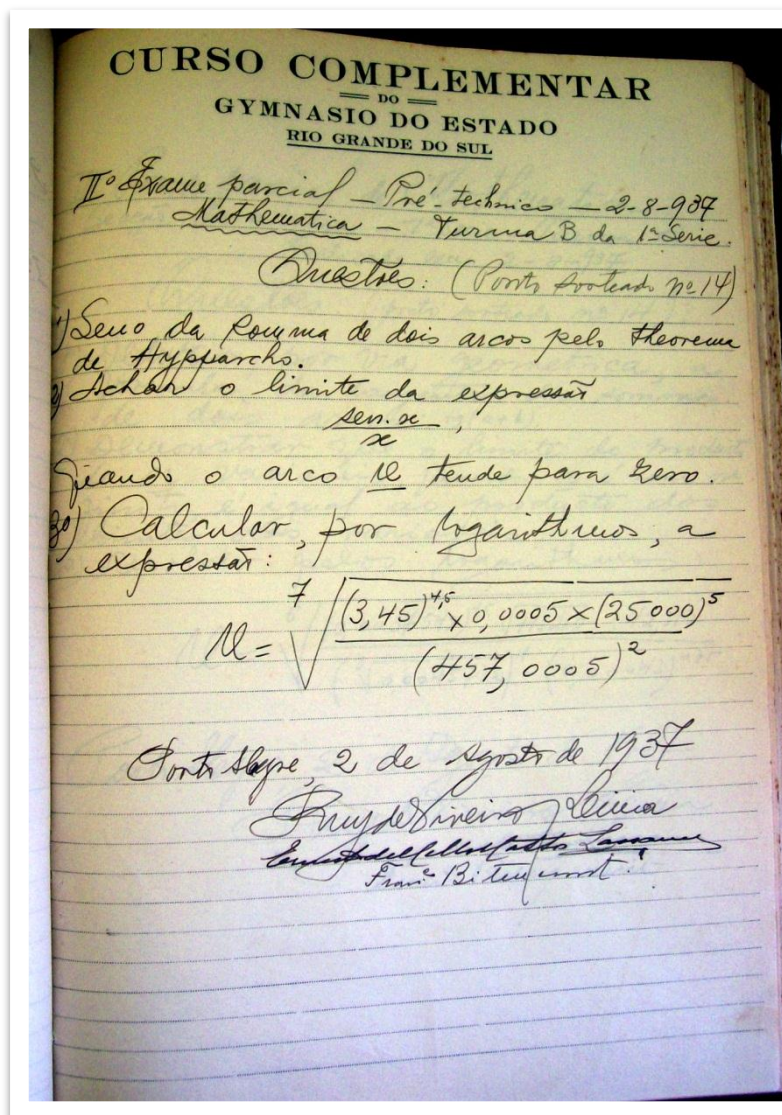 CURSO COMPLEMENTAR
DO
GYMNASIO DO ESTADO
RIO GRANDE DO SUL
IIº Exame parcial — Pré-technico — 2-8-937
Mathematica — Turma B da 1ª Serie.
Questões: (Ponto sorteado nº 14)
1º) Seno da somma de dois arcos pelo theorema
de Hypparcho.
2º) Achar o limite da expressão
sen. x / x ,
quando o arco x tende para zero.
3º) Calcular, por logarithmos, a
expressão:
x = ⁷√( (3,45)^4,5 × 0,0005 × (25000)^5 / (457,0005)^2 )
Porto Alegre, 2 de Agosto de 1937